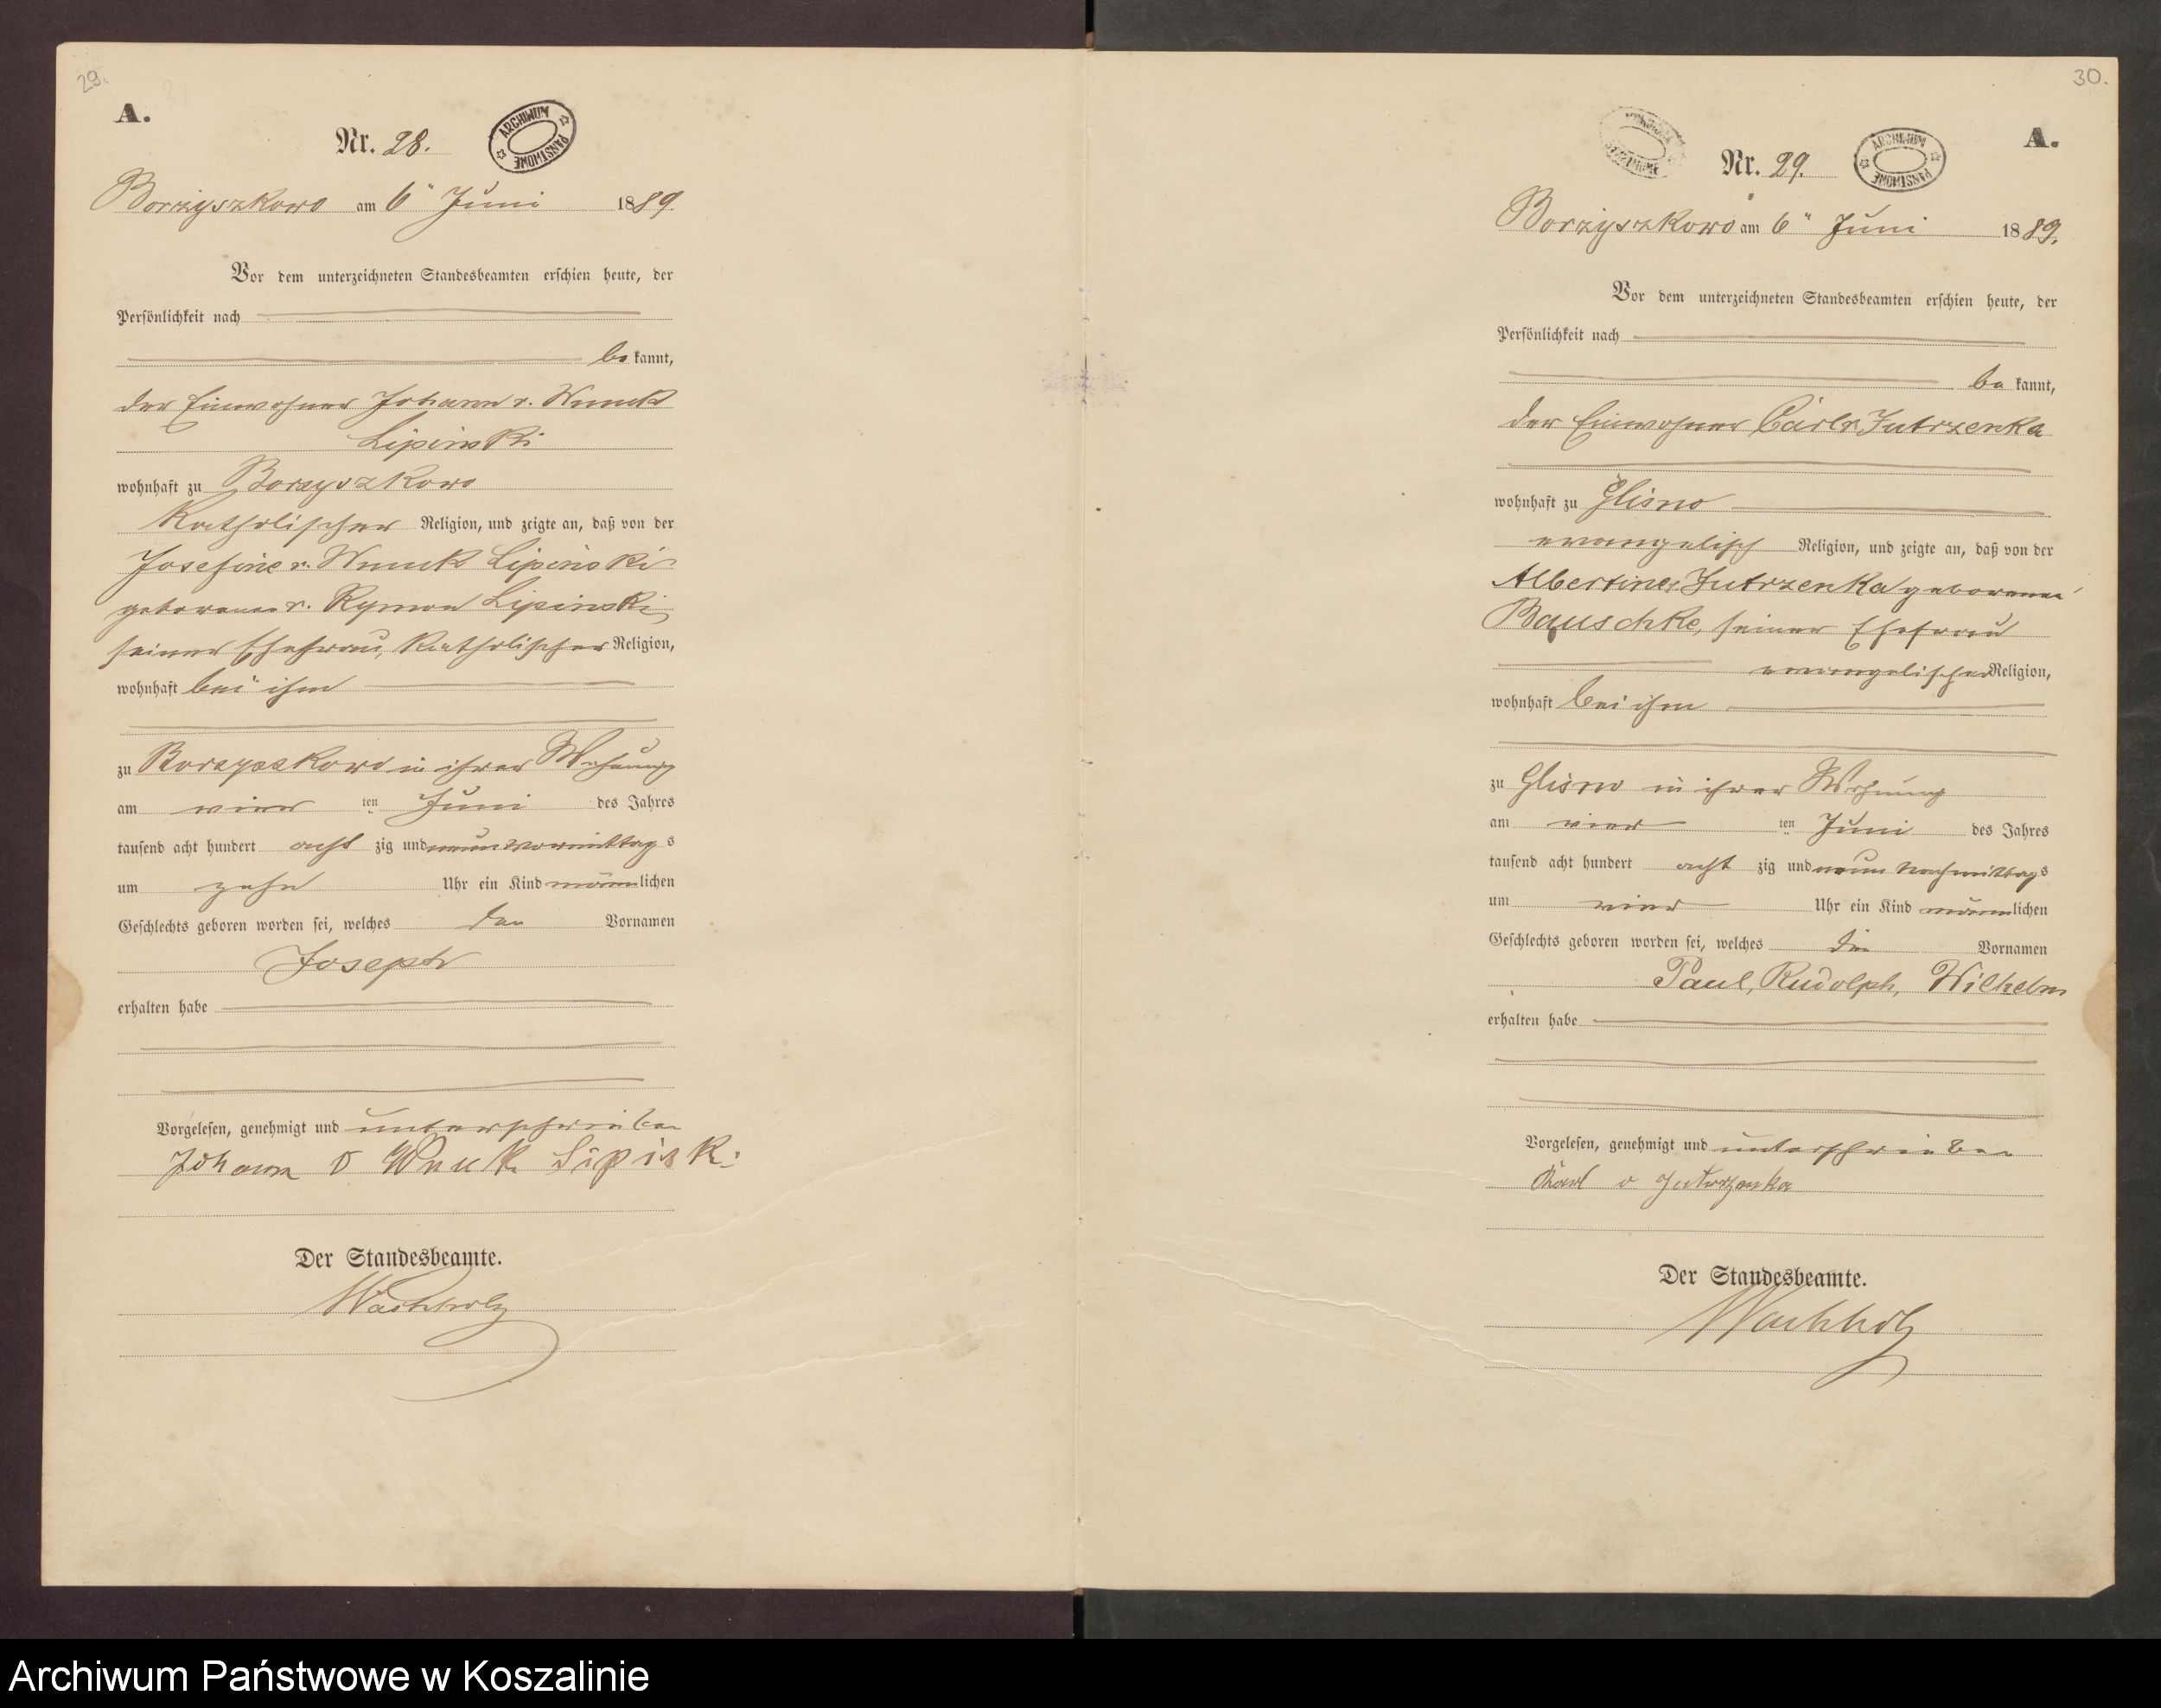 29.
A.
Nr. 28.
ARCHIWUM PAŃSTWOWE
Borzyszkowo am 6ⁿ Juni 1889.
Vor dem unterzeichneten Standesbeamten erschien heute, der
Persönlichkeit nach
be kannt,
der Einwohner Johann v. Wnuck
Lipinski
wohnhaft zu Borzyszkowo
Katholischer Religion, und zeigte an, daß von der
Josefine v. Wnuck Lipinski
geborenen v. Rymon Lipinski,
seiner Ehefrau, Katholischer Religion,
wohnhaft bei ihm
zu Borzyszkowo in ihrer Wohnung
am vier ten Juni des Jahres
tausend acht hundert acht zig und neun Vormittag s
um zehn Uhr ein Kind männlichen
Geschlechts geboren worden sei, welches den Vornamen
Joseph
erhalten habe
Vorgelesen, genehmigt und unterschrieben
Johann v Wnuk Lipiski
Der Standesbeamte.
Wachholz
30.
A.
ARCHIWUM PAŃSTWOWE
Nr. 29.
ARCHIWUM PAŃSTWOWE
Borzyszkowo am 6ⁿ Juni 1889.
Vor dem unterzeichneten Standesbeamten erschien heute, der
Persönlichkeit nach
be kannt,
der Einwohner Carl v. Jutrzenka
wohnhaft zu Glisno
evangelisch Religion, und zeigte an, daß von der
Albertine v. Jutrzenka geborenen
Bauschke, seiner Ehefrau
evangelischer Religion,
wohnhaft bei ihm
zu Glisno in ihrer Wohnung
am vier ten Juni des Jahres
tausend acht hundert acht zig und neun Nachmittags
um vier Uhr ein Kind männlichen
Geschlechts geboren worden sei, welches die Vornamen
Paul, Rudolph, Wilhelm
erhalten habe
Vorgelesen, genehmigt und unterschrieben
Karl v Jutrzenka
Der Standesbeamte.
Wachholz
Archiwum Państwowe w Koszalinie